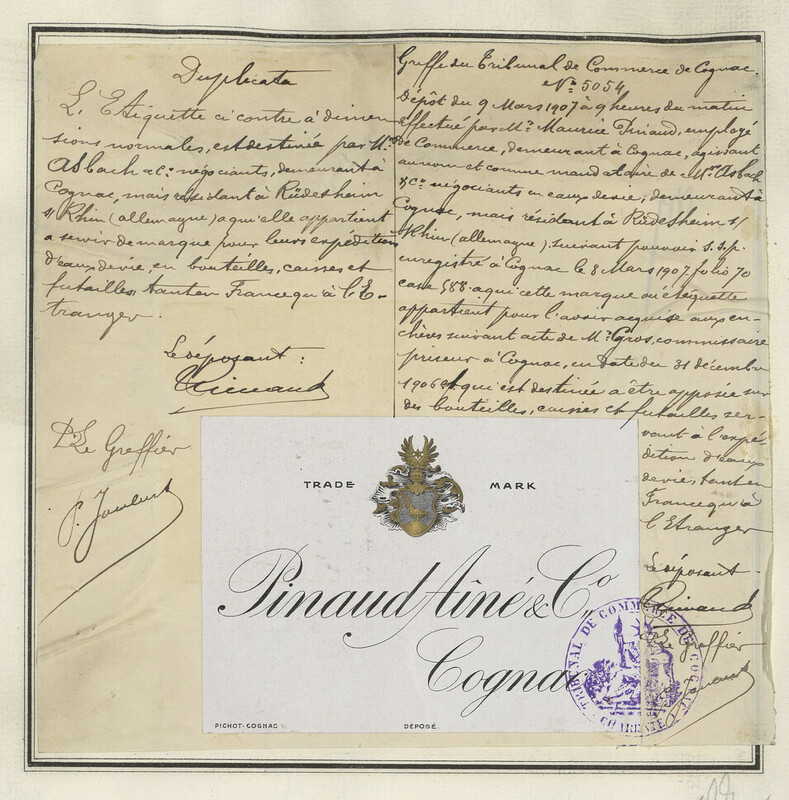 Duplicata
L'Etiquette ci contre à dimen-
sions normales, est destinée par Mrs
Asbach & Cie négociants, demeurant à
Cognac, mais résidant à Rüdesheim
s/ Rhin (allemagne) a qu'elle appartient
a servir de marque pour leurs expéditions
d'eaux de vie, en bouteilles, caisses et
futailles, tant en France qu'à l'E-
tranger.
Le déposant :
Pinaud
Le Greffier
Greffe du Tribunal de Commerce de Cognac.
No 5054
Dépôt du 9 Mars 1907 à 9 heures du matin
effectué par Mr Maurice Pinaud, employé
de Commerce, demeurant à Cognac, agissant
au nom et comme mandataire de Mrs Asbach
& Co négociants en eaux de vie, demeurant à
Cognac, mais résidant à Rüdesheim s/
Rhin (allemagne). suivant pouvoir s.s.p.
enregistré à Cognac le 8 Mars 1907 folio 70
case 588. a qui cette marque ou étiquette
appartient pour l'avoir acquise aux en-
chères suivant acte de Me Gros, commissaire
priseur à Cognac, en date du 31 décembre
1906 et qui est destinée a être apposée sur
des bouteilles, caisses et futailles ser-
vant à l'expé-
dition d'eaux
de vie, tant en
France qu'à
l'Etranger
Le déposant
Pinaud
Le Greffier
TRADE MARK
Pinaud Aîné & Co
Cognac
PICHOT-COGNAC
DÉPOSÉ.
TRIBUNAL DE COMMERCE DE COGNAC
CHARENTE